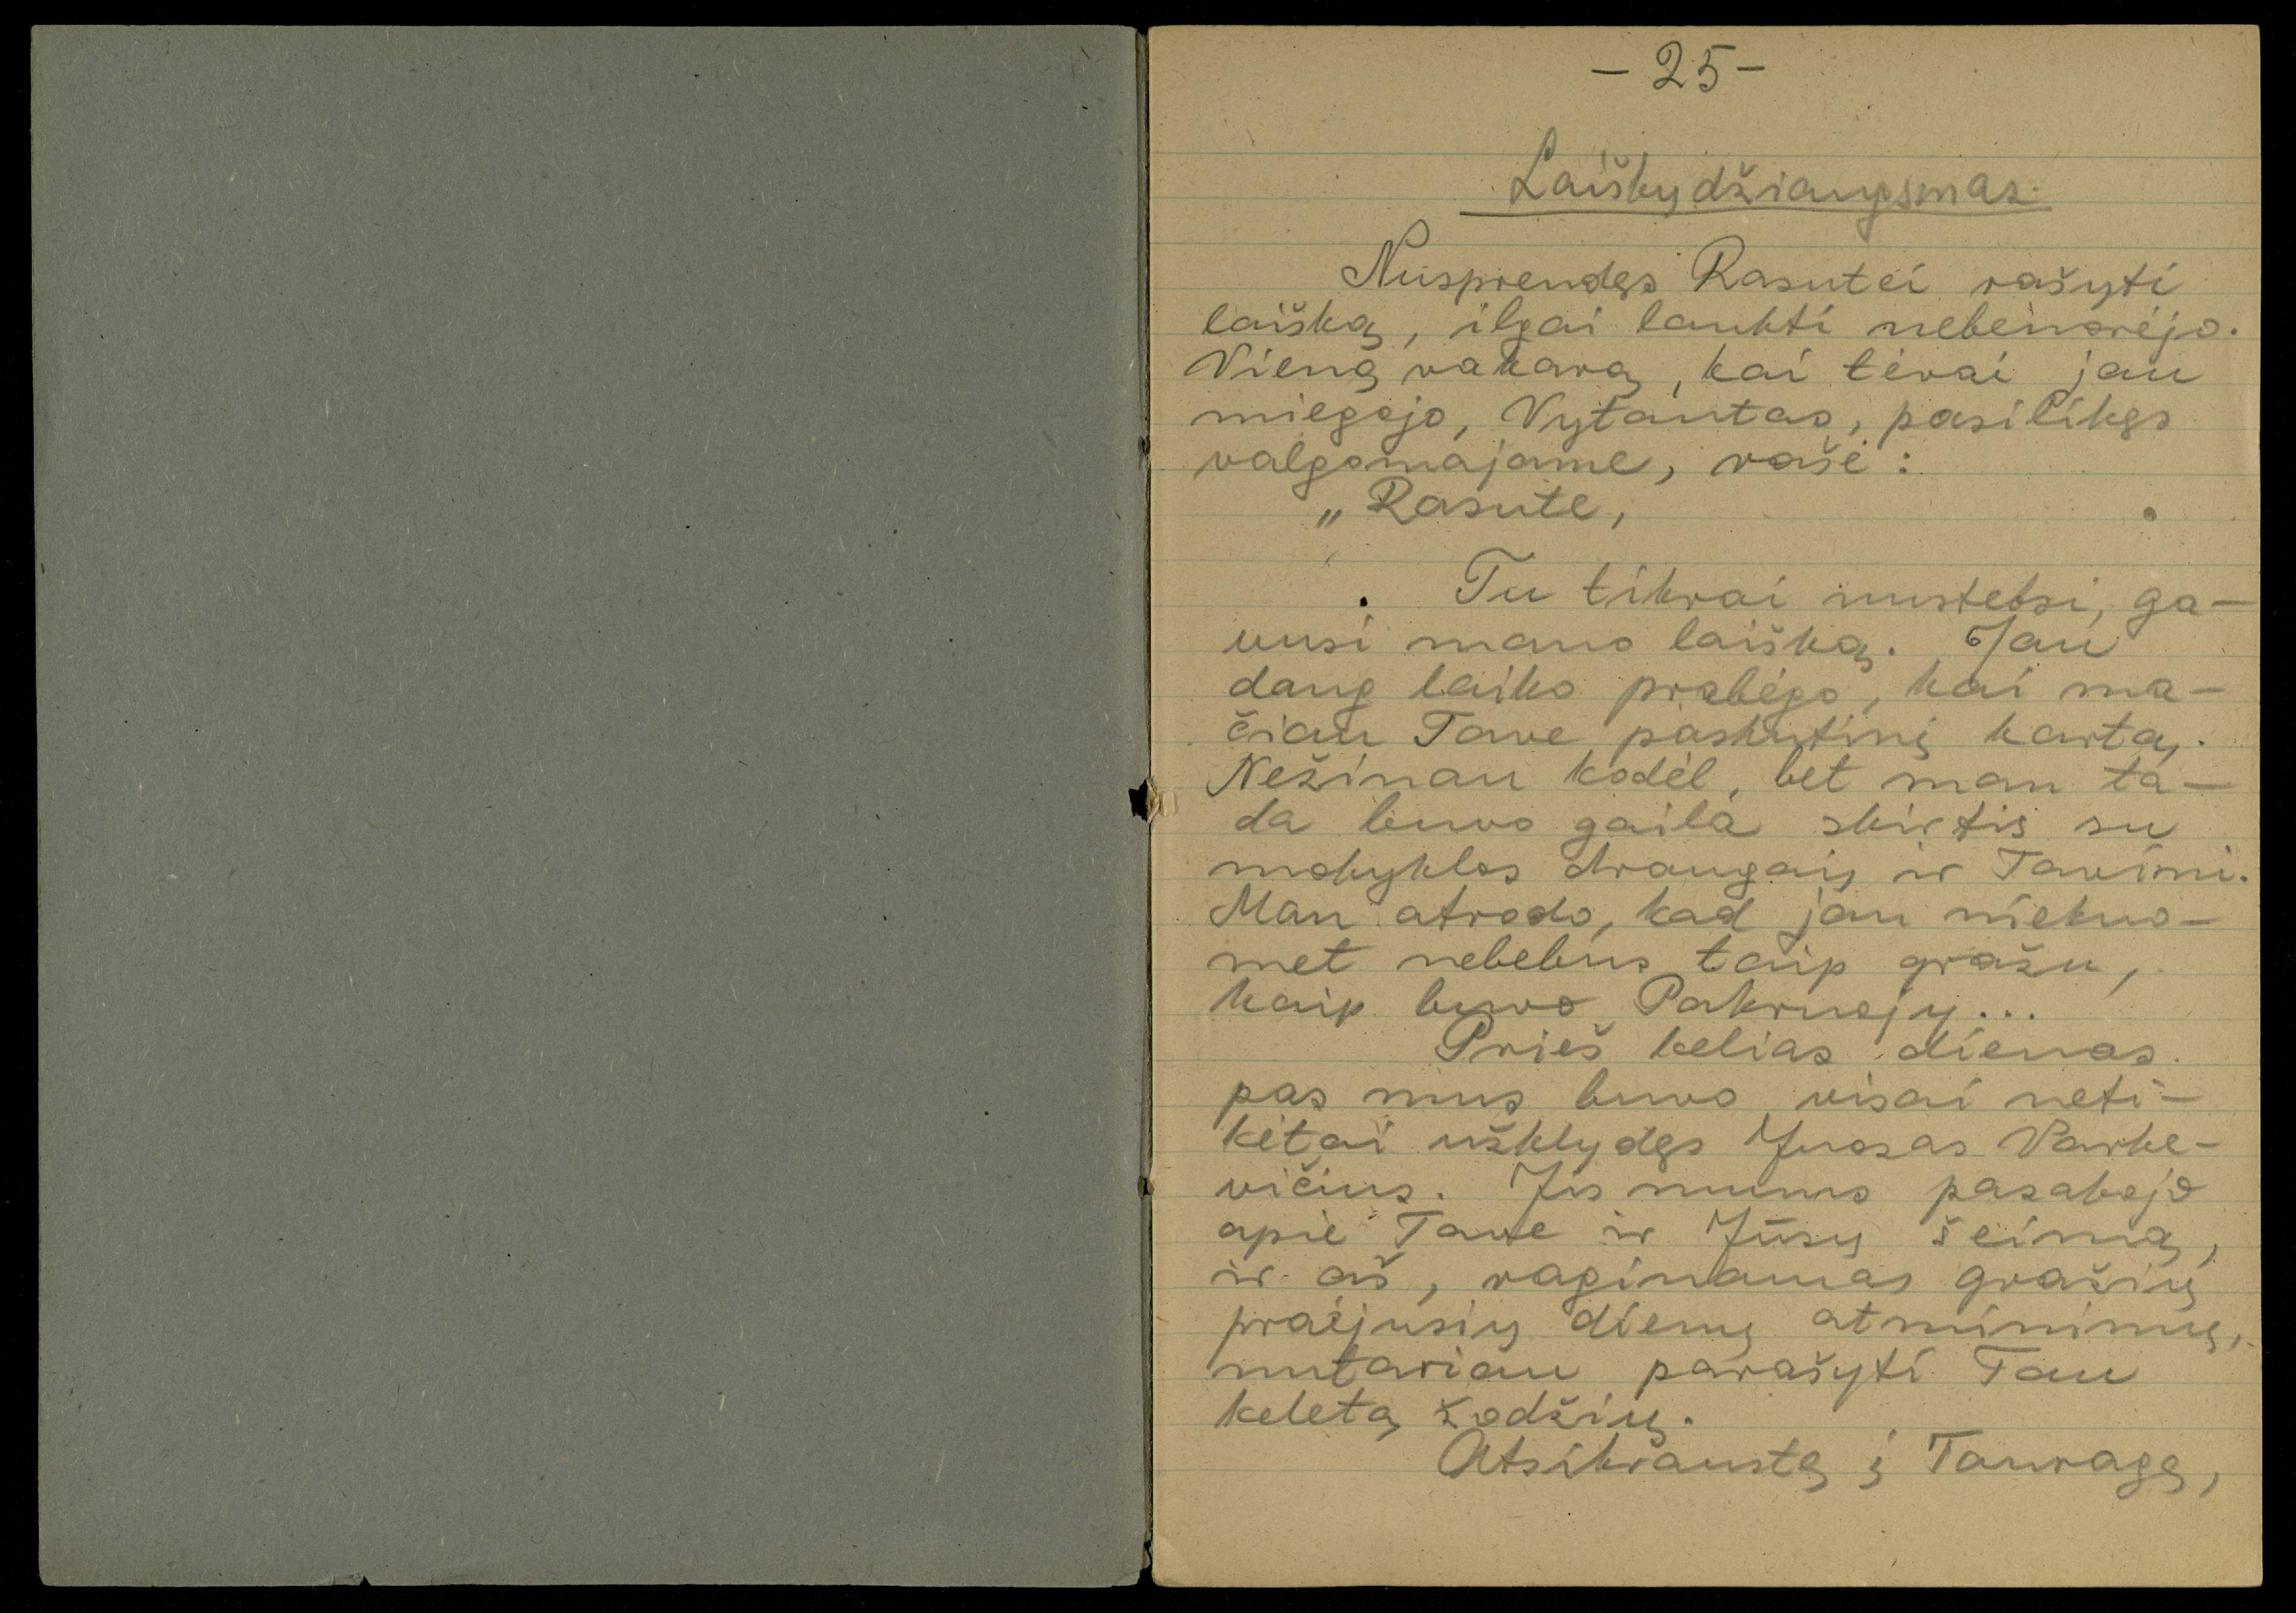 - 25 -
Laiškų džiaugsmas.
Nusprendęs Rasutei rašyti
laišką, ilgai laukti nebenorėjo.
Vieną vakarą, kai tėvai jau
miegojo, Vytautas, pasilikęs
valgomajame, rašė:
„Rasute,
Tu tikrai nustebsi, ga-
vusi mano laišką. Jau
daug laiko prabėgo, kai ma-
čiau Tave paskutinį kartą.
Nežinau kodėl, bet man ta-
da buvo gaila skirtis su
mokyklos draugais ir Tavimi.
Man atrodo, kad jau niekuo-
met nebebus taip gražu,
kaip buvo Pakruojy...
Prieš kelias dienas
pas mus buvo visai neti-
kėtai užklydęs Juozas Varke-
vičius. Jis mums pasakojo
apie Tave ir Jūsų šeimą,
ir aš, raginamas gražių
praėjusių dienų atminimų,
nutariau parašyti Tau
keletą žodžių.
Atsikraustę į Tauragę,